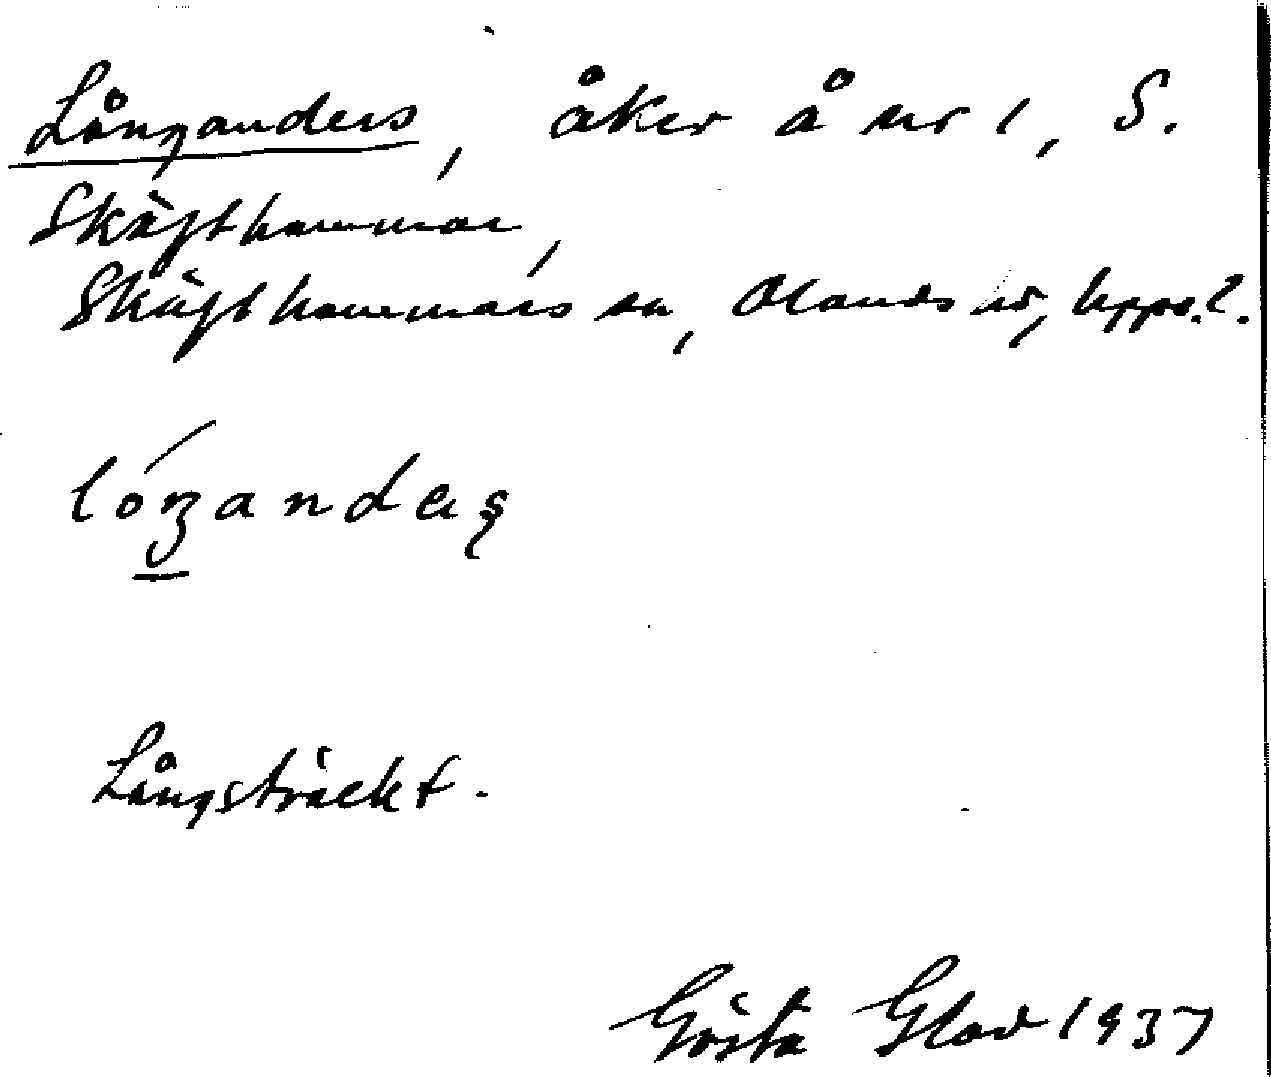 Långanders, åker å nr 1, S.
Skäfthammar,
Skäfthammars sn, Olands hd, Upps. l.
lóŋandaʂ
Långsträckt.
Gösta Glad 1937